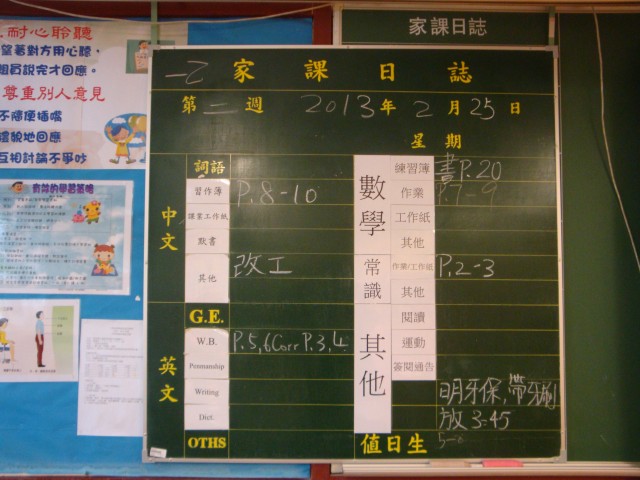 耐心聆聽
望著對方用心聽,
組員說完才回應。
尊重別人意見
不隨便插嘴
禮貌地回應
互相討論不爭吵
有效的學習策略
家課日誌
一乙 家課日誌
第二週 2013年2月25日
星期
中文
詞語
習作簿 P.8-10
課業工作紙
默書
其他 改工
英文
G.E.
W.B. P.5,6 Corr P.3,4
Penmanship
Writing
Dict.
OTHS
數學
練習簿 書P.20
作業 P.7-9
工作紙
其他
常識
作業/工作紙 P.2-3
其他
其他
閱讀
運動
簽閱通告
明牙保,帶牙刷
放 3:45
值日生